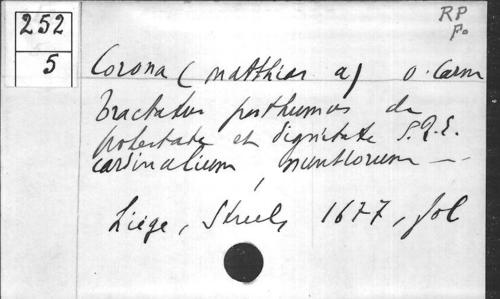 252
5
RP
fo.
Corona (Matthias a) o. Carm
Tractatus posthumus de
potestate et dignitate S.R.E.
cardinalium nuntiorum —
Liège, Streel, 1677, fol